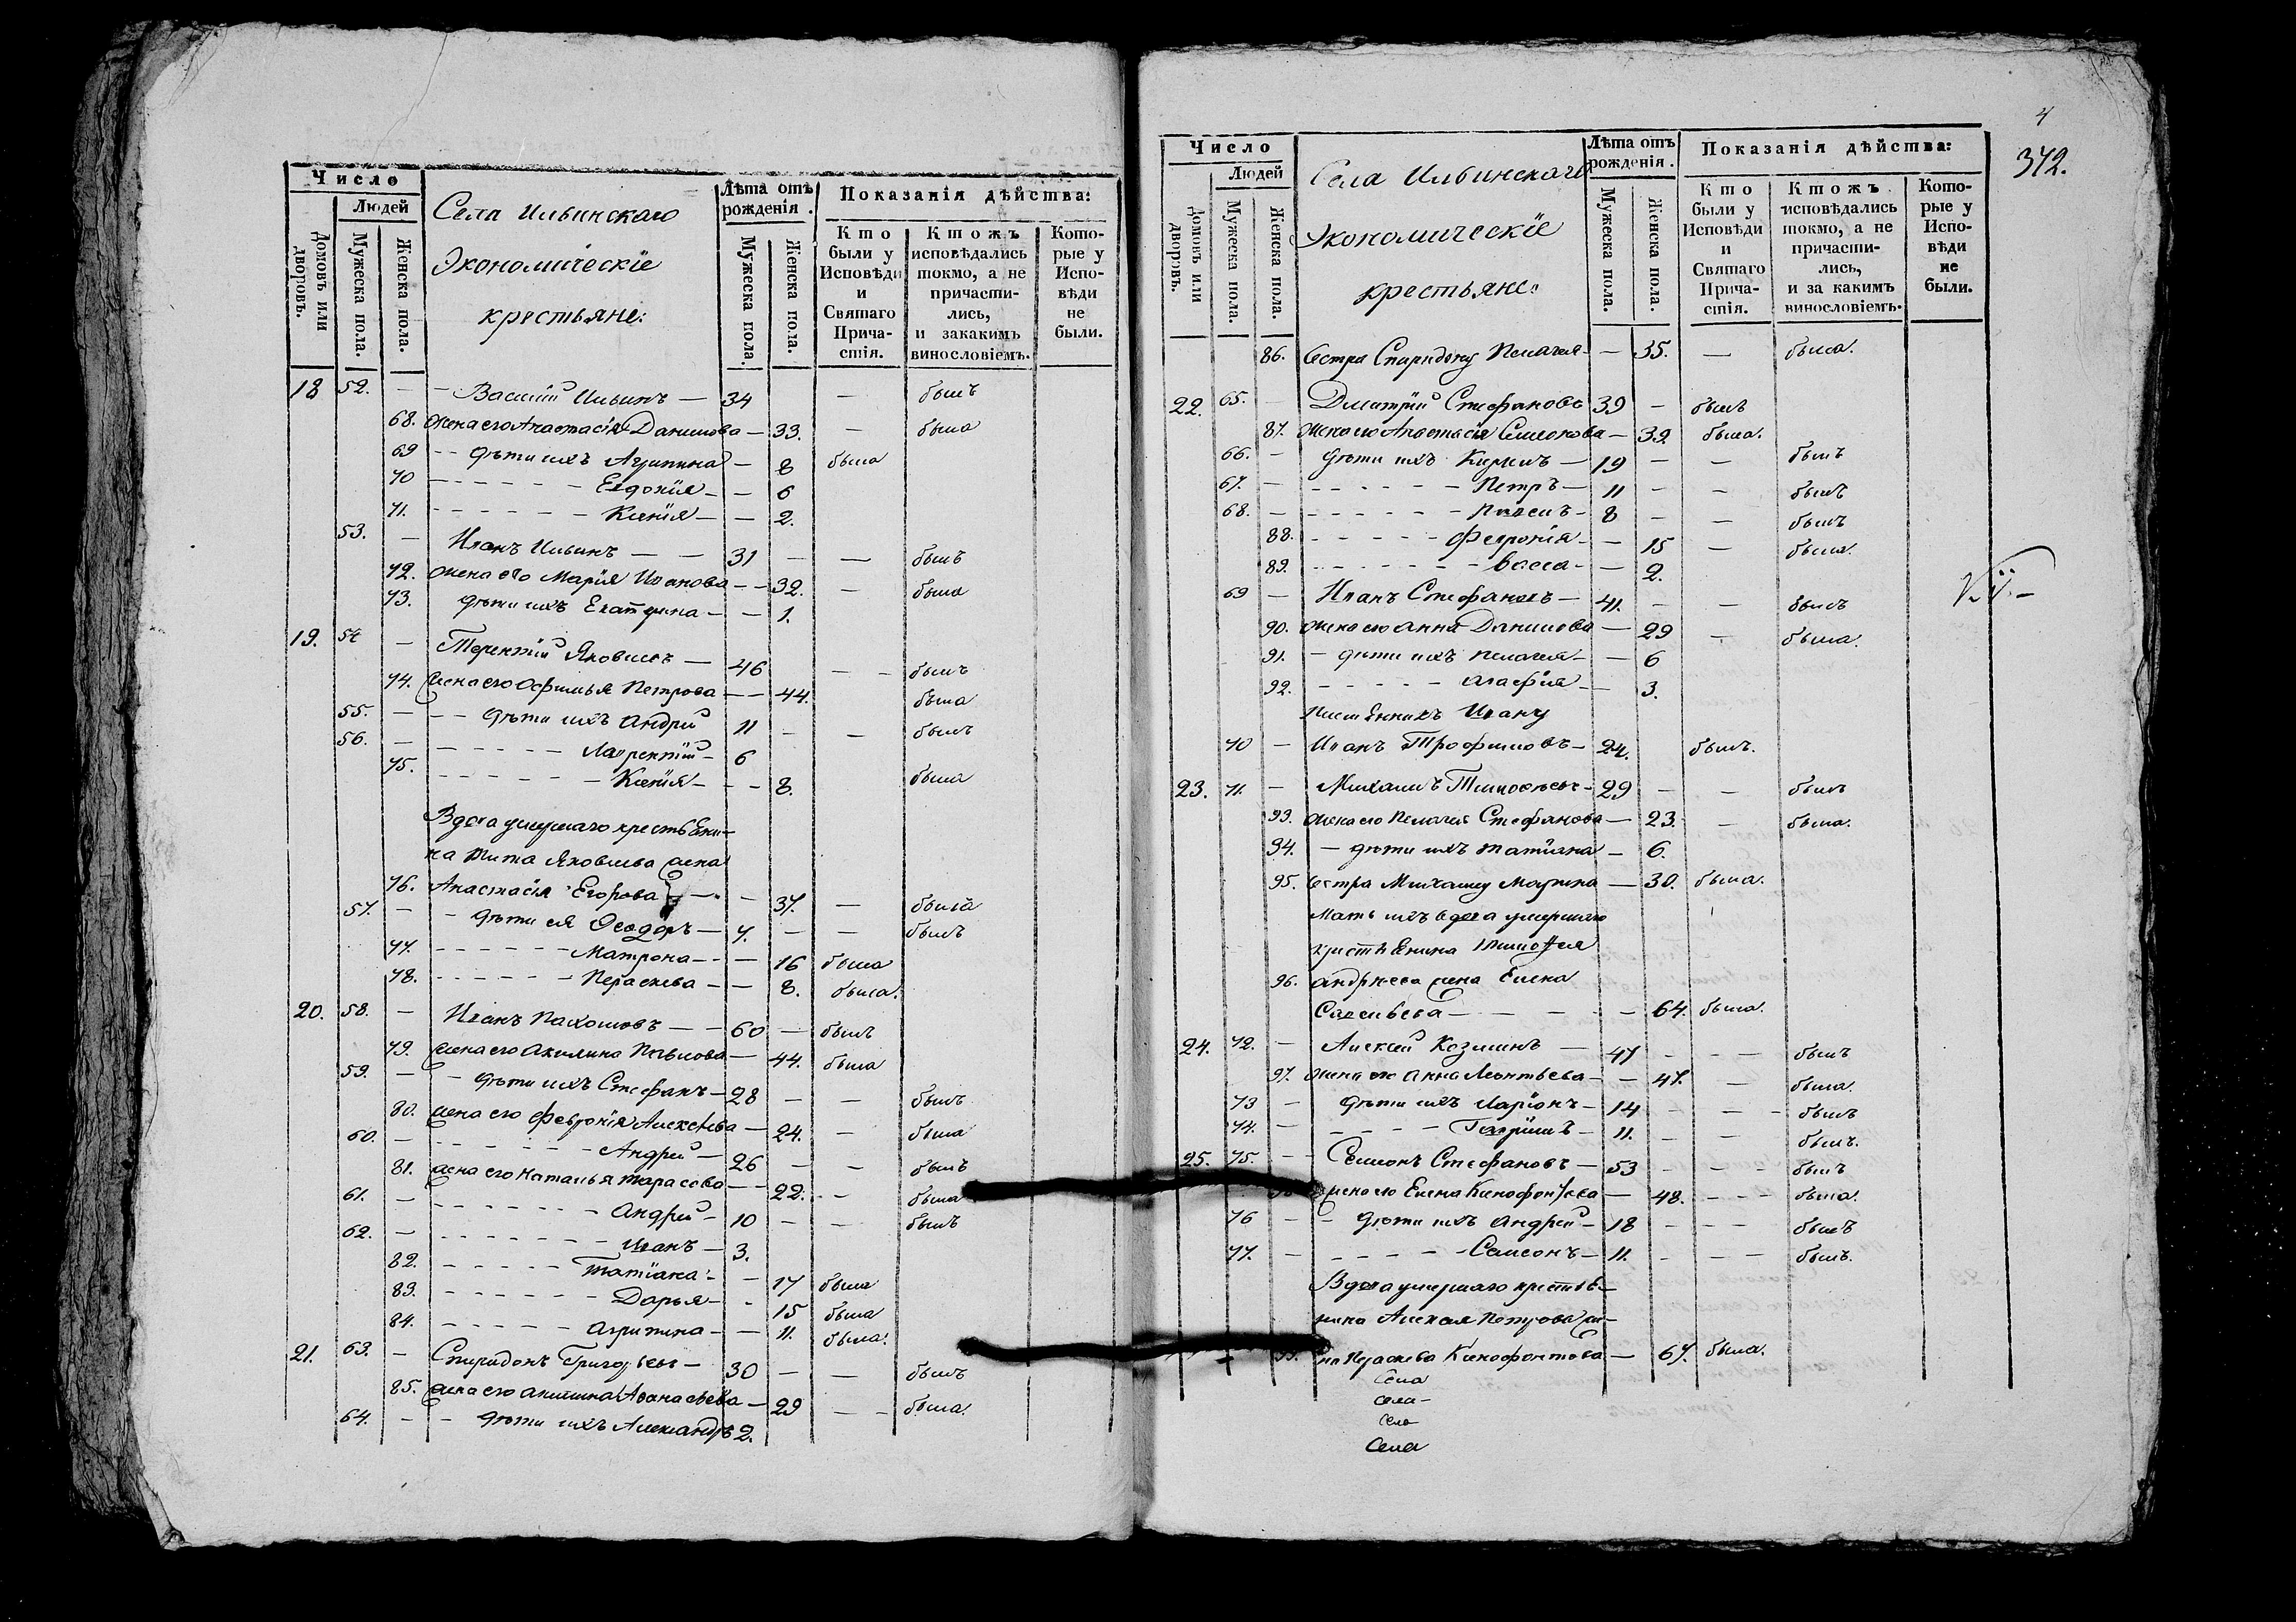 Число
Людей
Домовъ или дворовъ.
Мужеска пола.
Женска пола.
Села Ильинскаго
Экономическіе
крестьяне:
Лѣта отъ рожденія.
Мужеска пола.
Женска пола.
Показанія дѣйства:
Кто были у Исповѣди и Святаго Прича- стія.
Ктожъ исповѣдались токмо, а не причасти- лись, и закакимъ винословіемъ.
Кото- рые у Испо- вѣди не были.
18 52. — — Василій Ильинъ — 34 — былъ
68. Жена его Анастасія Данилова — 33. — была
69 — — дѣти ихъ Агрипина — 8 была
70 — — — — — Евдокія — — 6
71. — — — — — Ксенія — — 2.
53. — Иванъ Ильинъ — — 31 — — былъ
72. Жена его Марія Иванова — — 32. — была
73. дѣти ихъ Екатерина — — 1.
19. 54 — Терентій Яковлевъ — 46 — — былъ
74. Жена его Ѳефимья Петрова — — 44. была
55. — — — дѣти ихъ Андрей 11 — — былъ
56. — — — — — — Лаврентій — 6
75. — — — — — Ксенія — — — 8. была
Вдова умершаго крестьяни-
на Тита Яковлева жена
76. Анастасія Егорова — — — 37. — была
57. — — дѣти ея Ѳеодоръ — 7. — — былъ
77. — — — — — Матрона — — — 16 была
78. — — — — — Пераскева — — 8. была.
20. 58. — Иванъ Пахомовъ — — 60 — былъ
79. жена его Акилина Павлова — 44. была
59. — — дѣти ихъ Стефанъ — 28 — — былъ
80. жена его Февронія Алексѣева — 24. — была
60. — — — — — Андрей — 26 — — былъ
81. жена его Наталья Тарасова — — 22. — была
61. — — — — — — Андрей — 10 — — былъ
62. — — — — — — Иванъ — 3.
82. — — — — — Татіана — — 17 была
83. — — — — — Дарья — - 15 была
84. — — — — — Агрипина — — 11. была.
21. 63. — Спиридонъ Григорьевъ — 30 — — былъ
85. жена его Акилина Аѳанасьева — 29 — — была.
64. — — дѣти ихъ Александръ 2.
4
372.
Число
Людей
Домовъ или дворовъ.
Мужеска пола.
Женска пола.
Села Ильинскаго
Экономическіе
крестьяне:
Лѣта отъ рожденія.
Мужеска пола.
Женска пола.
Показанія дѣйства:
Кто были у Исповѣди и Святаго Прича- стія.
Ктожъ исповѣдались токмо, а не причасти- лись, и за какимъ винословіемъ.
Кото- рые у Испо- вѣди не были.
86. Сестра Спиридону Пелагея — — 35. — была.
22. 65. — Дмитрій Стефановъ 39 — былъ
87. Жена его Анастасія Семенова — 39. была.
66. — дѣти ихъ Кирилъ — 19 — — былъ
67. — — — — — — Петръ — 11 — — былъ
68. — — — — — — Павелъ — 8 — — былъ
88. — — — — — Февронія — — 15 — была.
89. — — — — — — Васса — — 2.
69 — Иванъ Стефановъ — 41. — — былъ
90. Жена его Анна Данилова — 29 — была.
91. — дѣти ихъ Пелагея — — 6
92. — — — — — Агафія — — 3.
Племянникъ Ивану
70 — Иванъ Трофимовъ — 24. былъ.
23. 71. — Михаилъ Тимоѳеевъ — 29 — — былъ
93. Жена его Пелагея Стефанова — 23. — была.
94. — дѣти ихъ Татіана — 6.
95. Сестра Михаилу Марина — 30. была.
Мать ихъ вдова умершаго
крестьянина Тимоѳея
96. Андреева жена Елена
Савельева — — — — — 64. была.
24. 72. — Алексей Козминъ — 47 — — — былъ
97. Жена его Анна Леонтьева — — 47. — была.
73 — дѣти ихъ Ларіонъ — 14 — — — былъ
74. — — — — — Гавріилъ — 11. — — былъ.
25. 75. — — Семионъ Стефановъ — 53 — — — былъ
жена его Елена Ксенофонтова — 48. — — — была.
76 — — дѣти ихъ Андрей — 18 — — — былъ
77. — — — — — — Самсонъ — 11. — — — былъ.
Вдова умершаго крестья-
нина Алексея Петрова же-
99. на Пераскева Ксенофонтова — 67. была.
Села
Села —
Села
Села